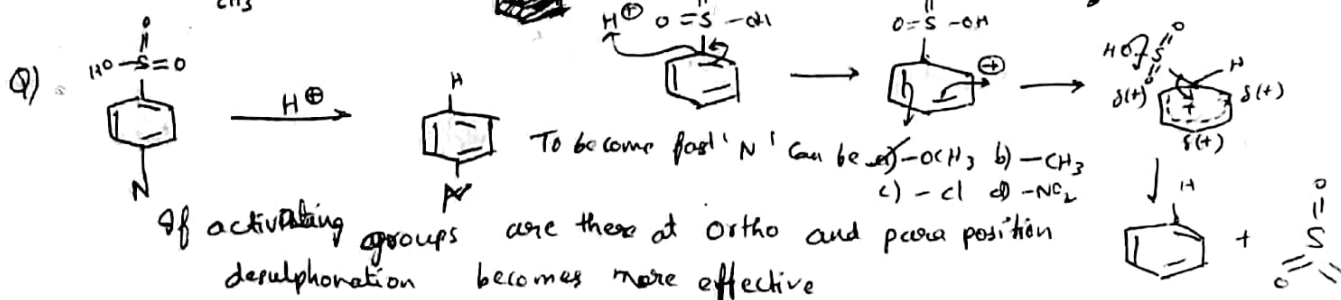 CH3
O
HO-S=O
H⊕ O=S-OH
O=S-OH
⊕
HO S O
O
H
δ(+) + δ(+)
δ(+)
Q)
H⊕
H
N
N
To become fast 'N' can be a) -OCH3 b) -CH3
c) -Cl d) -NO2
If activating groups are there at ortho and para position
desulphonation becomes more effective
H
+
O
S
O